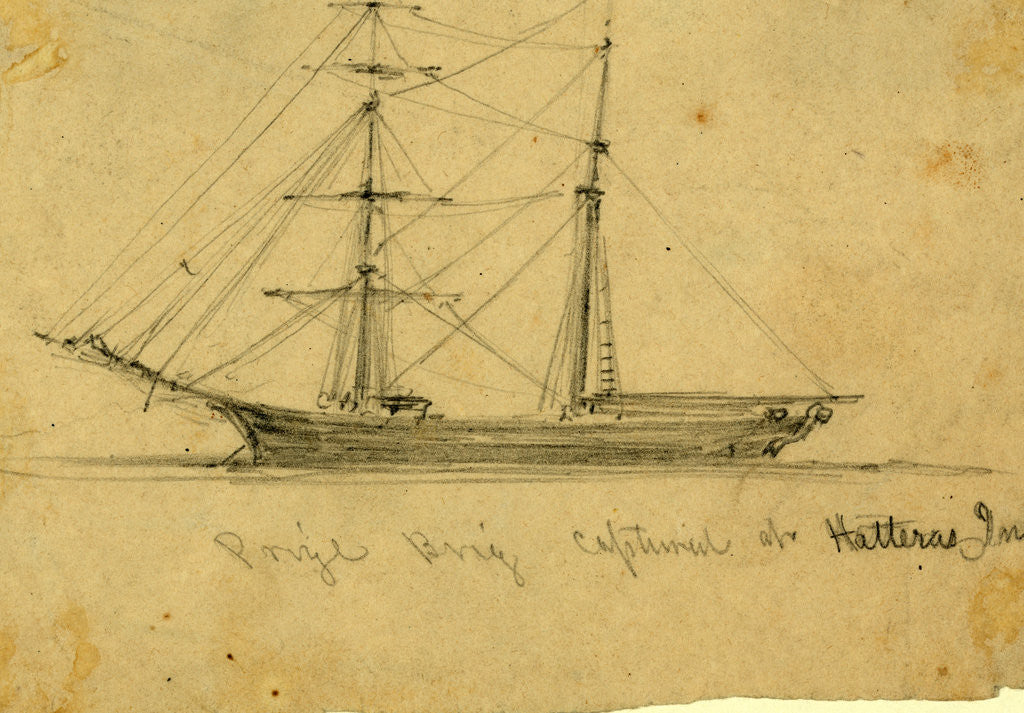 Prize Brig captured at Hatteras In